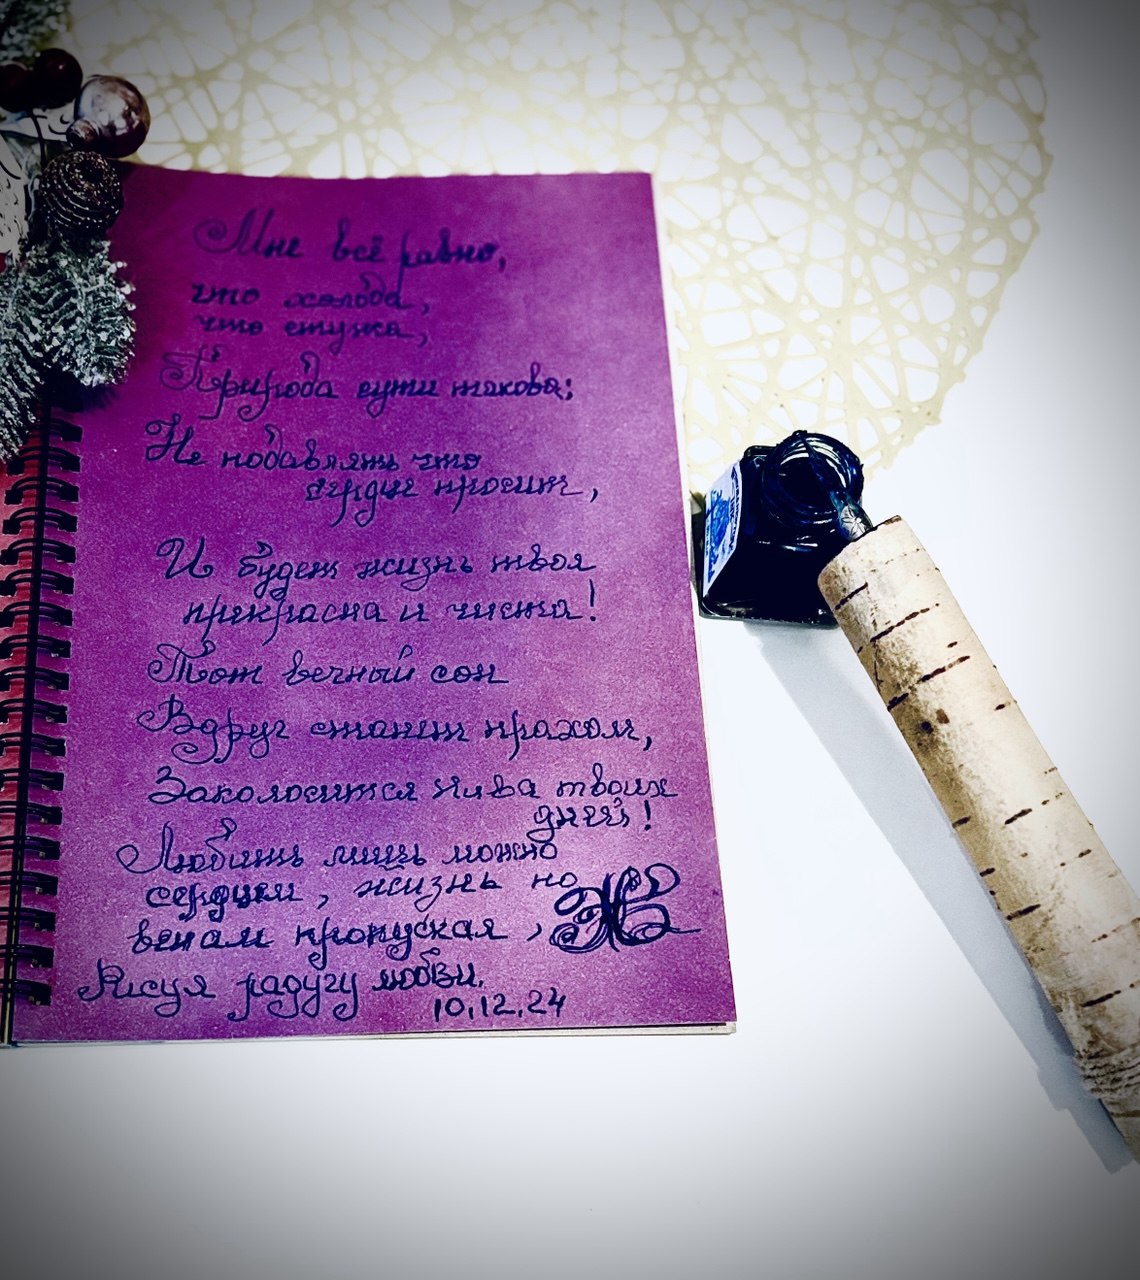 Мне всё равно,
что холода,
что стужа,
Природа сути такова;
Не подавлять что
сердце просит,
И будет жизнь твоя
прекрасна и чиста!
Тот вечный сон
Вдруг станет прахом,
Заколосится нива твоих
дней!
Любить лишь можно
сердцем, жизнь по
венам пропуская,
Рисуя радугу любви.
10.12.24